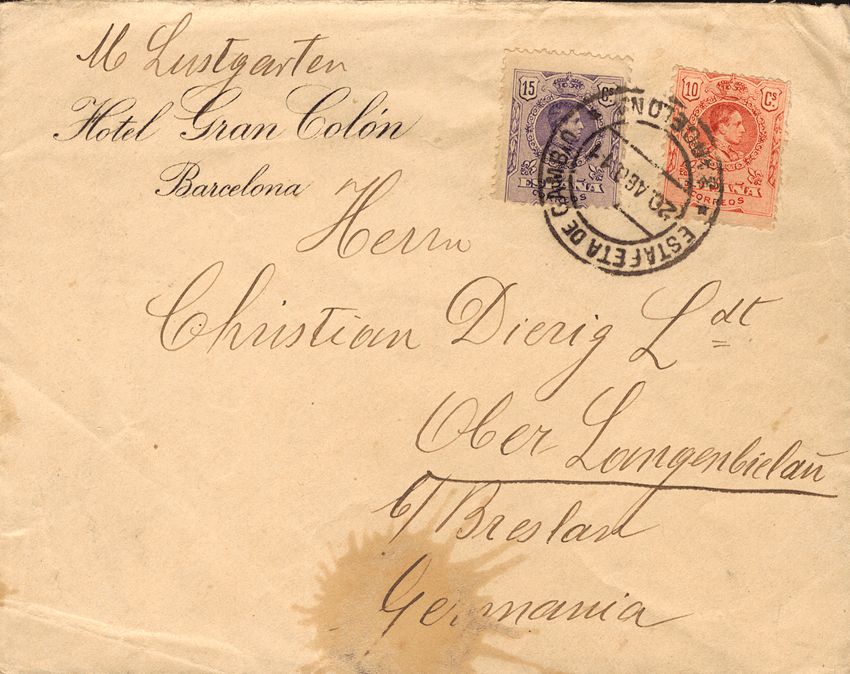 M Lustgarten
Hotel Gran Colón
Barcelona
15 Cs
ESPAÑA
CORREOS
10 Cs
ESPAÑA
CORREOS
ESTAFETA DE CAMBIO
BARCELONA
Herrn
Christian Dierig Ldt
Ober Langenbielau
b/ Breslau
Germania